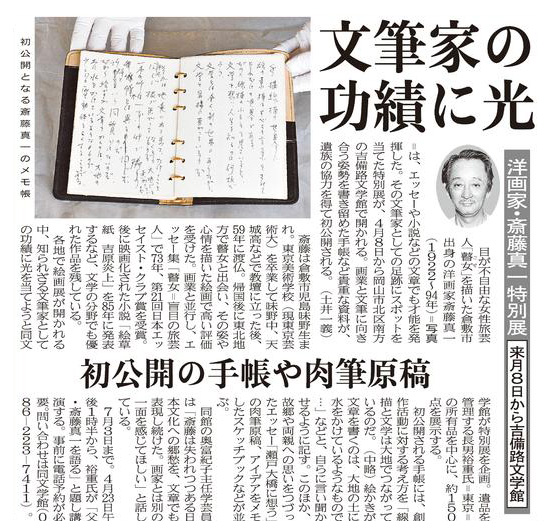 文筆家の
功績に光
洋画家・斎藤真一 特別展
来月8日から吉備路文学館
目が不自由な女性旅芸
人「瞽女」を描いた倉敷市
出身の洋画家斎藤真一
(1922〜94)=写真
=は、エッセーや小説などの文章でも才能を発
揮した。その文筆家としての足跡にスポットを
当てた特別展が、4月8日から岡山市北区南方
の吉備路文学館で開かれる。画業と文筆に向き
合う姿勢を書き留めた手帳など貴重な資料が、
遺族の協力を得て初公開される。(土井一義)
初公開となる斎藤真一のメモ帳
斎藤は倉敷市児島味野生ま
れ。東京美術学校(現東京芸
術大)を卒業して味野中、天
城高などで教壇に立った後、
59年に渡仏。帰国後に東北地
方で瞽女と出会い、その姿や
心情を描いた絵画で高い評価
を受けた。画業と並行し、エ
ッセー集「瞽女=盲目の旅芸
人」で73年、第21回日本エッ
セイスト・クラブ賞を受賞。
後に映画化された小説「絵草
紙 吉原炎上」を85年に発表
するなど、文学の分野でも優
れた作品を残している。
各地で絵画展が開かれる
中、知られざる文筆家として
の功績に光を当てようと同文
初公開の手帳や肉筆原稿
学館が特別展を企画。遺品を
管理する長男裕重氏=東京=
の所有品を中心に、約150
点を展示する。
初公開される手帳には、創
作活動に対する考え方を「線
描と文学は大地でつながって
いるのだ。(中略)絵かきが
文章を書くのは、大地の土に
水をかけているようなもので
…」などと、自らに言い聞か
せるように記す。このほか、
故郷や両親への思いをつづっ
たエッセー「瀬戸大橋に想う」
の肉筆原稿、アイデアをメモ
したスケッチブックなどが並
ぶ。
同館の奥富紀子主任学芸員
は「斎藤は失われつつある日
本文化への郷愁を、文章でも
表現し続けた。画家とは別の
一面を感じてほしい」と話し
ている。
7月3日まで。4月23日午
後1時半から、裕重氏が「父
・斎藤真一を語る」と題し講
演する。事前に電話予約が必
要。問い合わせは同文学館(0
86―223―7411)。